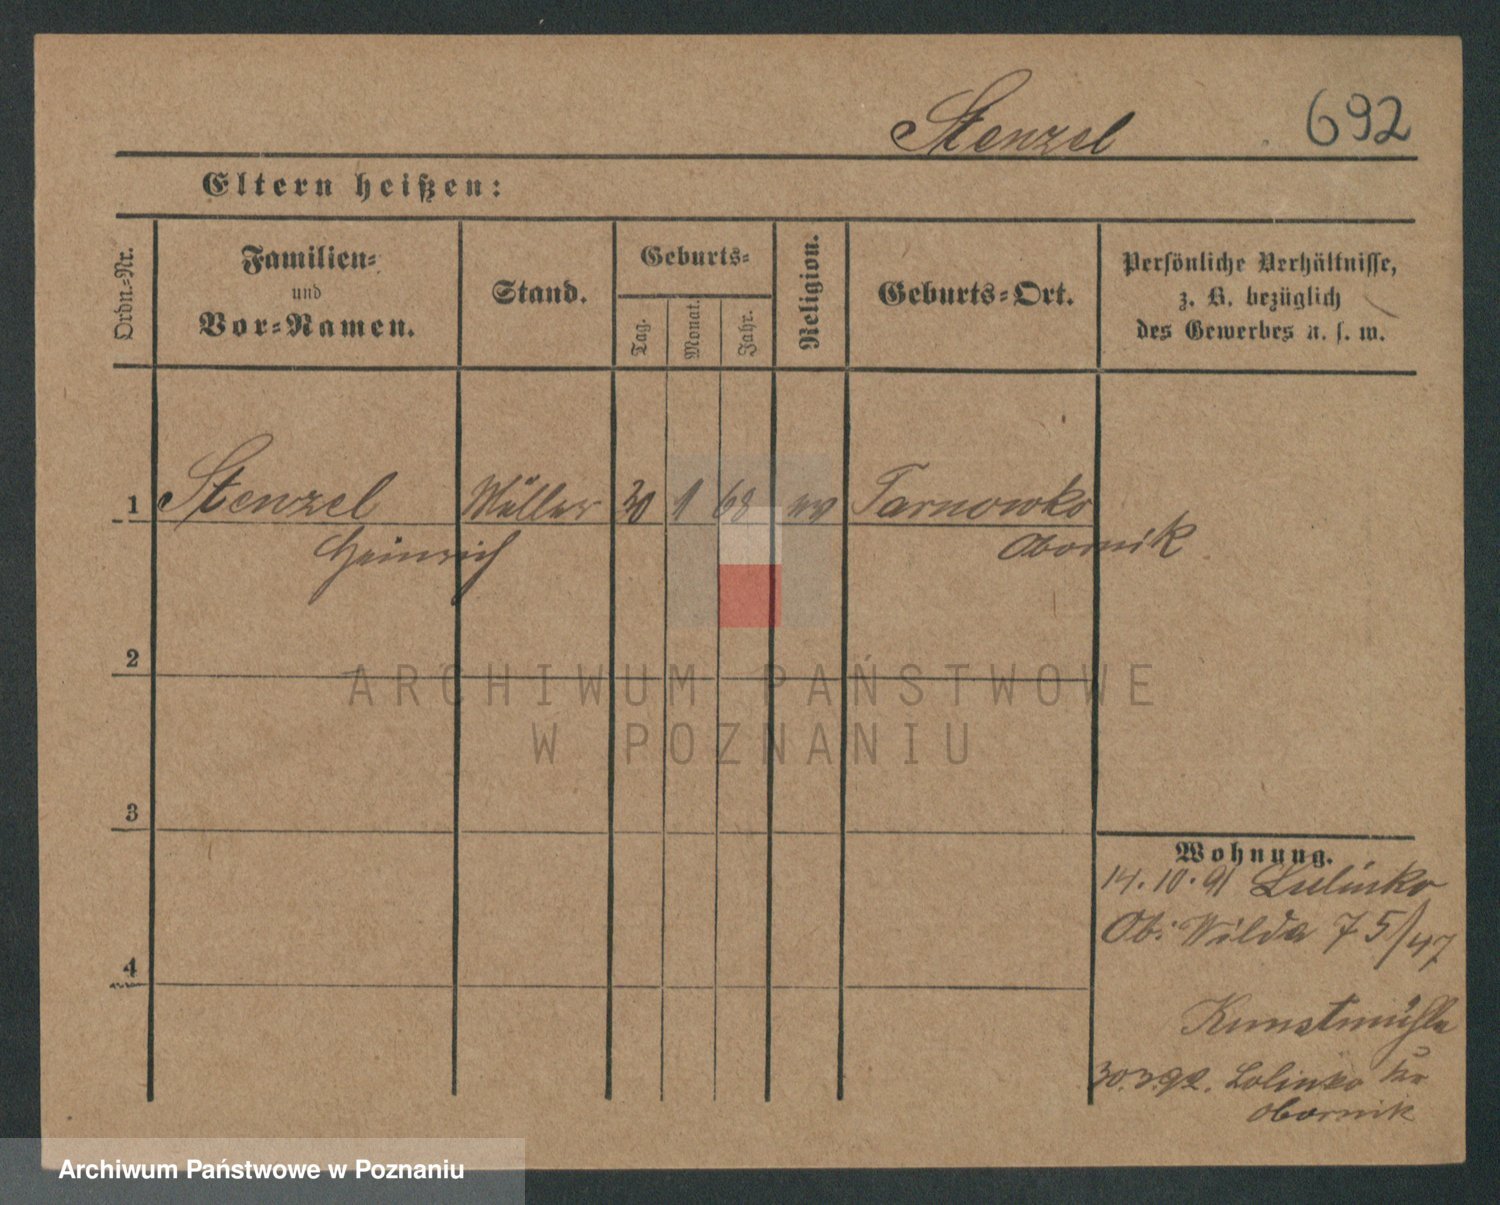 Stenzel 692
Eltern heißen:
Ordn.-Nr. Familien- und Vor-Namen. Stand. Geburts- Tag. Monat. Jahr. Religion. Geburts-Ort. Persönliche Verhältnisse, z. B. bezüglich des Gewerbes u. s. w.
1 Stenzel Müller 30 1 68 ev Tarnowko
Heinrich Obornik
2
3
4
Wohnung.
14.10.91 Lulinko
Ob. Wilda 75/47
Kunstmühle
30.3.92. Lolinko Kr
Obornik
ARCHIWUM PAŃSTWOWE
W POZNANIU
Archiwum Państwowe w Poznaniu